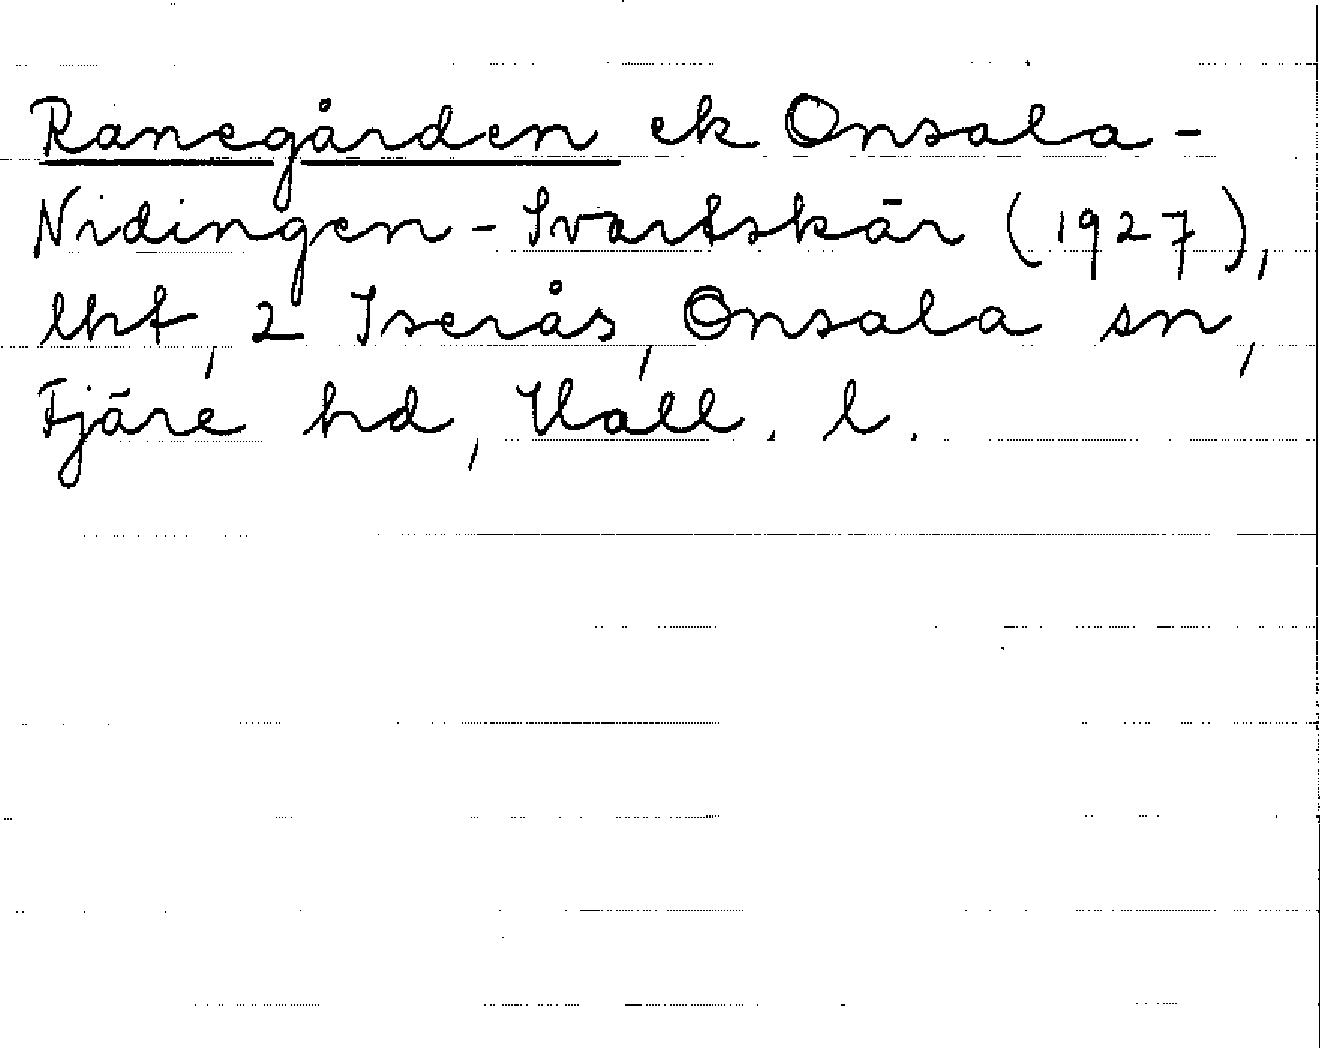 Ranegården ek Onsala-
Nidingen-Svartskär (1927),
lht, 2 Iserås, Onsala sn,
Fjäre hd, Hall. l.